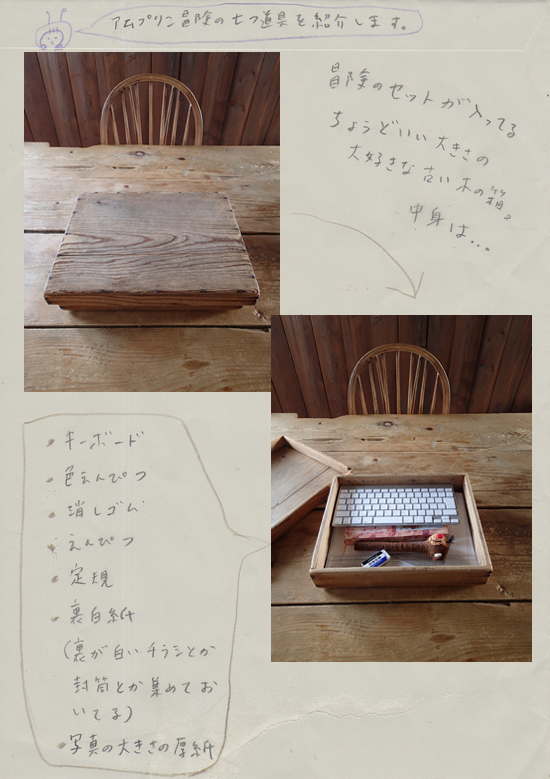 アムプリン冒険の七つ道具を紹介します。
冒険のセットが入ってる
ちょうどいい大きさの
大好きな古い木の箱。
中身は…。
・キーボード
・色えんぴつ
・消しゴム
・えんぴつ
・定規
・裏白紙
(裏が白いチラシとか
封筒とか集めてお
いてる)
・写真の大きさの厚紙